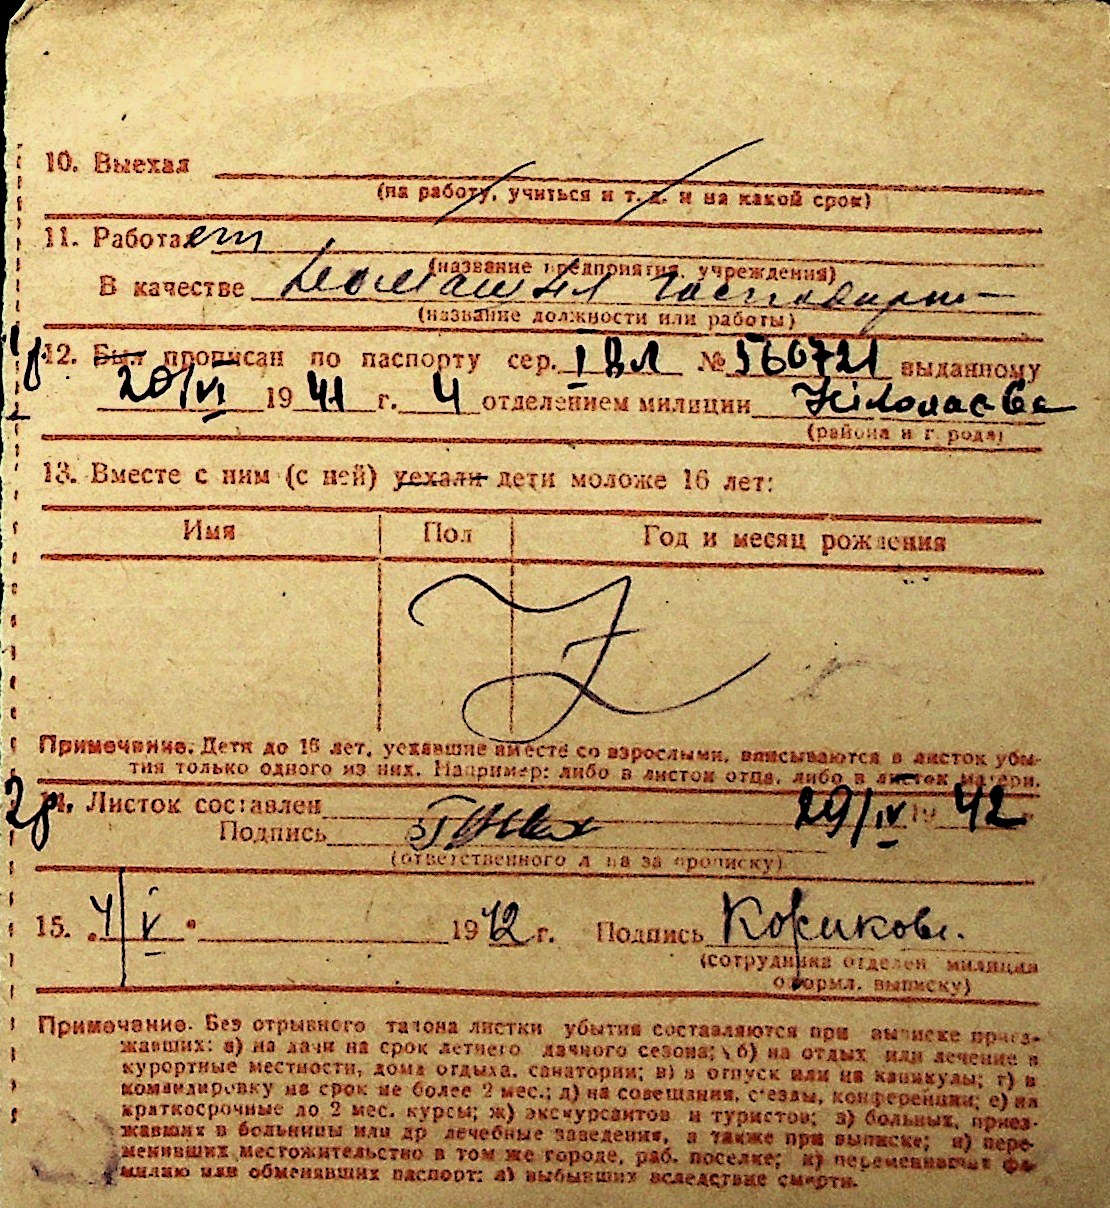 10. Выехал
(на работу, учиться и т. д. и на какой срок)
11. Работает
(название предприятия, учреждения)
В качестве
(название должности или работы)
12. Был прописан по паспорту сер. I ВЛ № 560721 выданному
20/VI 1941 г. 4 отделением милиции
(района и города)
13. Вместе с ним (с ней) уехали дети моложе 16 лет:
Имя Пол Год и месяц рождения
Z
Примечание. Дети до 16 лет, уехавшие вместе со взрослыми, вписываются в листок убы-
тия только одного из них. Например: либо в листок отца, либо в листок матери.
14. Листок составлен 29/IV 1942
Подпись
(ответственного лица за прописку)
15. „4/V" 1942 г. Подпись
(сотрудника отделен. милиции
оформл. выписку)
Примечание. Без отрывного талона листки убытия составляются при выписке приез-
жавших: а) на дачи на срок летнего дачного сезона; б) на отдых или лечение в
курортные местности, дома отдыха, санатории; в) в отпуск или на каникулы; г) в
командировку на срок не более 2 мес.; д) на совещания, с'езды, конференции; е) на
краткосрочные до 2 мес. курсы; ж) экскурсантов и туристов; з) больных, приез-
жавших в больницы или др лечебные заведения, а также при выписке; и) пере-
менивших местожительство в том же городе, раб. поселке; к) переменивших фа-
милию или обменявших паспорт; л) выбывших вследствие смерти.